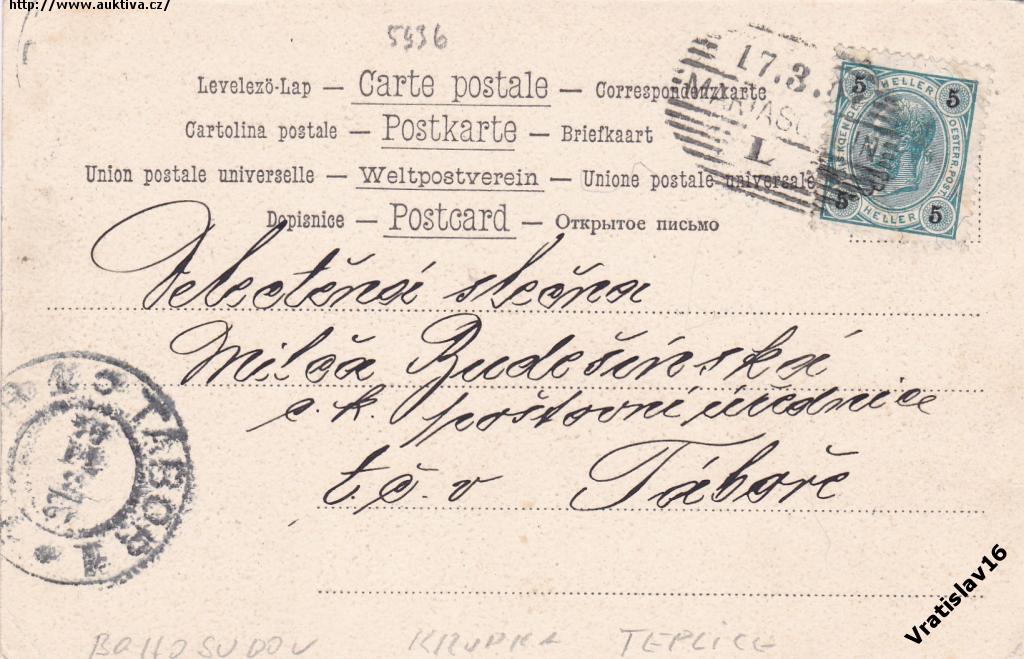 http://www.auktiva.cz/
5936
Levelezö-Lap — Carte postale — Correspondenzkarte
Cartolina postale — Postkarte — Briefkaart
Union postale universelle — Weltpostverein — Unione postale universale
Dopisnice — Postcard — Открытое письмо
17.3.
L
5 HELLER 5
OESTERR. POST.
5 HELLER 5
Velectěná slečna
Milča Budešínská
c. k. poštovní úřednice
t. č. v Táboře
TABOR 1
BOHOSUDOV KRUPKA TEPLICE
Vratislav16